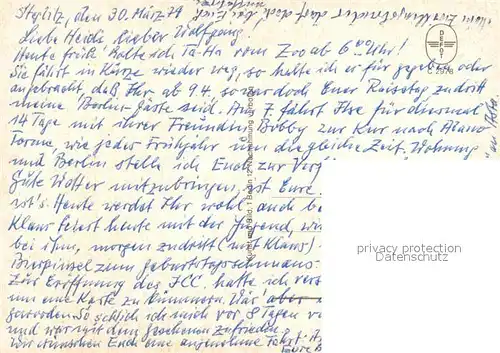 Steglitz, den 30. März 79
Liebe Heide, lieber Wolfgang!
Heute früh holte ich Ta-Ha vom Zoo ab 6 00 Uhr!
Sie fährt in Kürze wieder weg, so halte ich es für gegeben oder
angebracht, daß Ihr ab 9.4. so zu Eurer Reisetag zu dritt
meine Berlin-Gäste seid. Am 7. fährt Ihre für diesmal
14 Tage mit ihrer Freundin Bobby zur Kur nach Abano
Terme, wie jedes Frühjahr um die gleiche Zeit. Wohnung
und Berlin stelle ich Euch zur Verf
Gute Wetter mitzubringen, ist Eure
ist's. Heute werdet Ihr wohl auch be
Klaus feiert heute mit der Jugend, wir
bei ihm, morgen zu dritt (mit Klaus)
Bierpinsel zum Geburtstagsschmaus.
Zur Eröffnung des ICC hatte ich vers
um eine Karte zu kümmern. Wär' aber
geworden. So schlich ich mich vor 8 Tagen
und war mit dem Gesehenen zufrieden.
Wir wünschen Euch eine angenehme Fahrt.
DEFOT
Kunst und Bild, 1 Berlin 12
privacy protection
Datenschutz